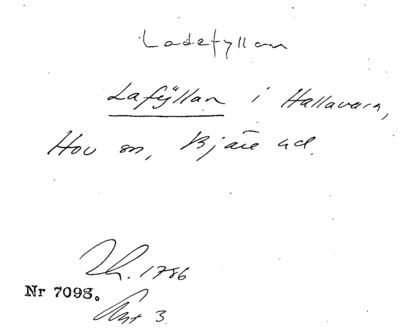 Ladefyllan
Lafÿllan i Hallavara,
Hov sn, Bjäre hd.
1786
Nr 7098.
3